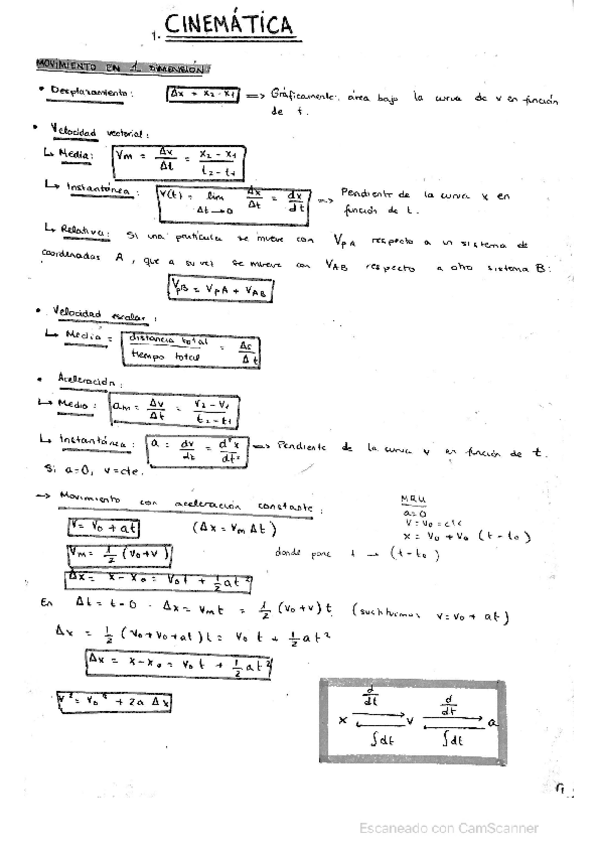 1. CINEMÁTICA
MOVIMIENTO EN 1 DIMENSIÓN:
• Desplazamiento: Δx = x2 - x1 => Gráficamente: área bajo la curva de v en función
de t.
• Velocidad vectorial:
↳ Media: Vm = Δx/Δt = (x2 - x1)/(t2 - t1)
↳ Instantánea: v(t) = lim Δt→0 Δx/Δt = dx/dt => Pendiente de la curva x en
función de t.
↳ Relativa: Si una partícula se mueve con VpA respecto a un sistema de
coordenadas A, que a su vez se mueve con VAB respecto a otro sistema B:
VpB = VpA + VAB
• Velocidad escalar:
↳ Media = distancia total/tiempo total = Δs/Δt
• Aceleración:
↳ Media: am = Δv/Δt = (v2 - v1)/(t2 - t1)
↳ Instantánea: a = dv/dt = d²x/dt² => Pendiente de la curva v en función de t.
Si a=0, v=cte.
→ Movimiento con aceleración constante:
v = v0 + at (Δx = vm Δt)
Vm = 1/2 (v0+v) donde pone t → (t-t0)
Δx = x-x0 = v0t + 1/2 at²
MRU
a=0
v = v0 = cte
x = v0 + v0 (t-t0)
En Δt = t-0 · Δx = vmt = 1/2 (v0+v)t (sustituimos v=v0 + at)
Δx = 1/2 (v0+v0+at)t = v0 t + 1/2 at²
Δx = x-x0 = v0 t + 1/2 at²
v² = v0² + 2a Δx
d/dt d/dt
x v a
∫dt ∫dt
Escaneado con CamScanner